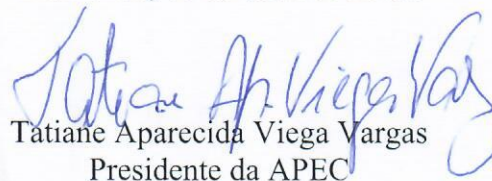 Tatiane Ap. Viega Var
Tatiane Aparecida Viega Vargas
Presidente da APEC